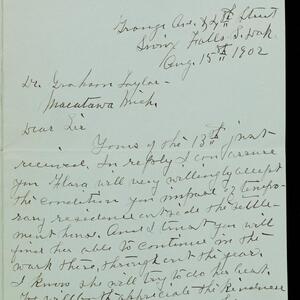 Grange Ave. & 22nd Street
Sioux Falls S. Dak.
Aug. 15th 1902
Dr. Graham Taylor-
Macatawa Mich.
Dear Sir
Yours of the 13th inst
received. In reply I can assure
you Flora will very willingly accept
the condition you impose of tempo-
rary residence outside the settle-
ment house. And I trust you will
find her able to continue in the
work there, throughout the year,
I know she will try to do her best.
We will both appreciate the kindness